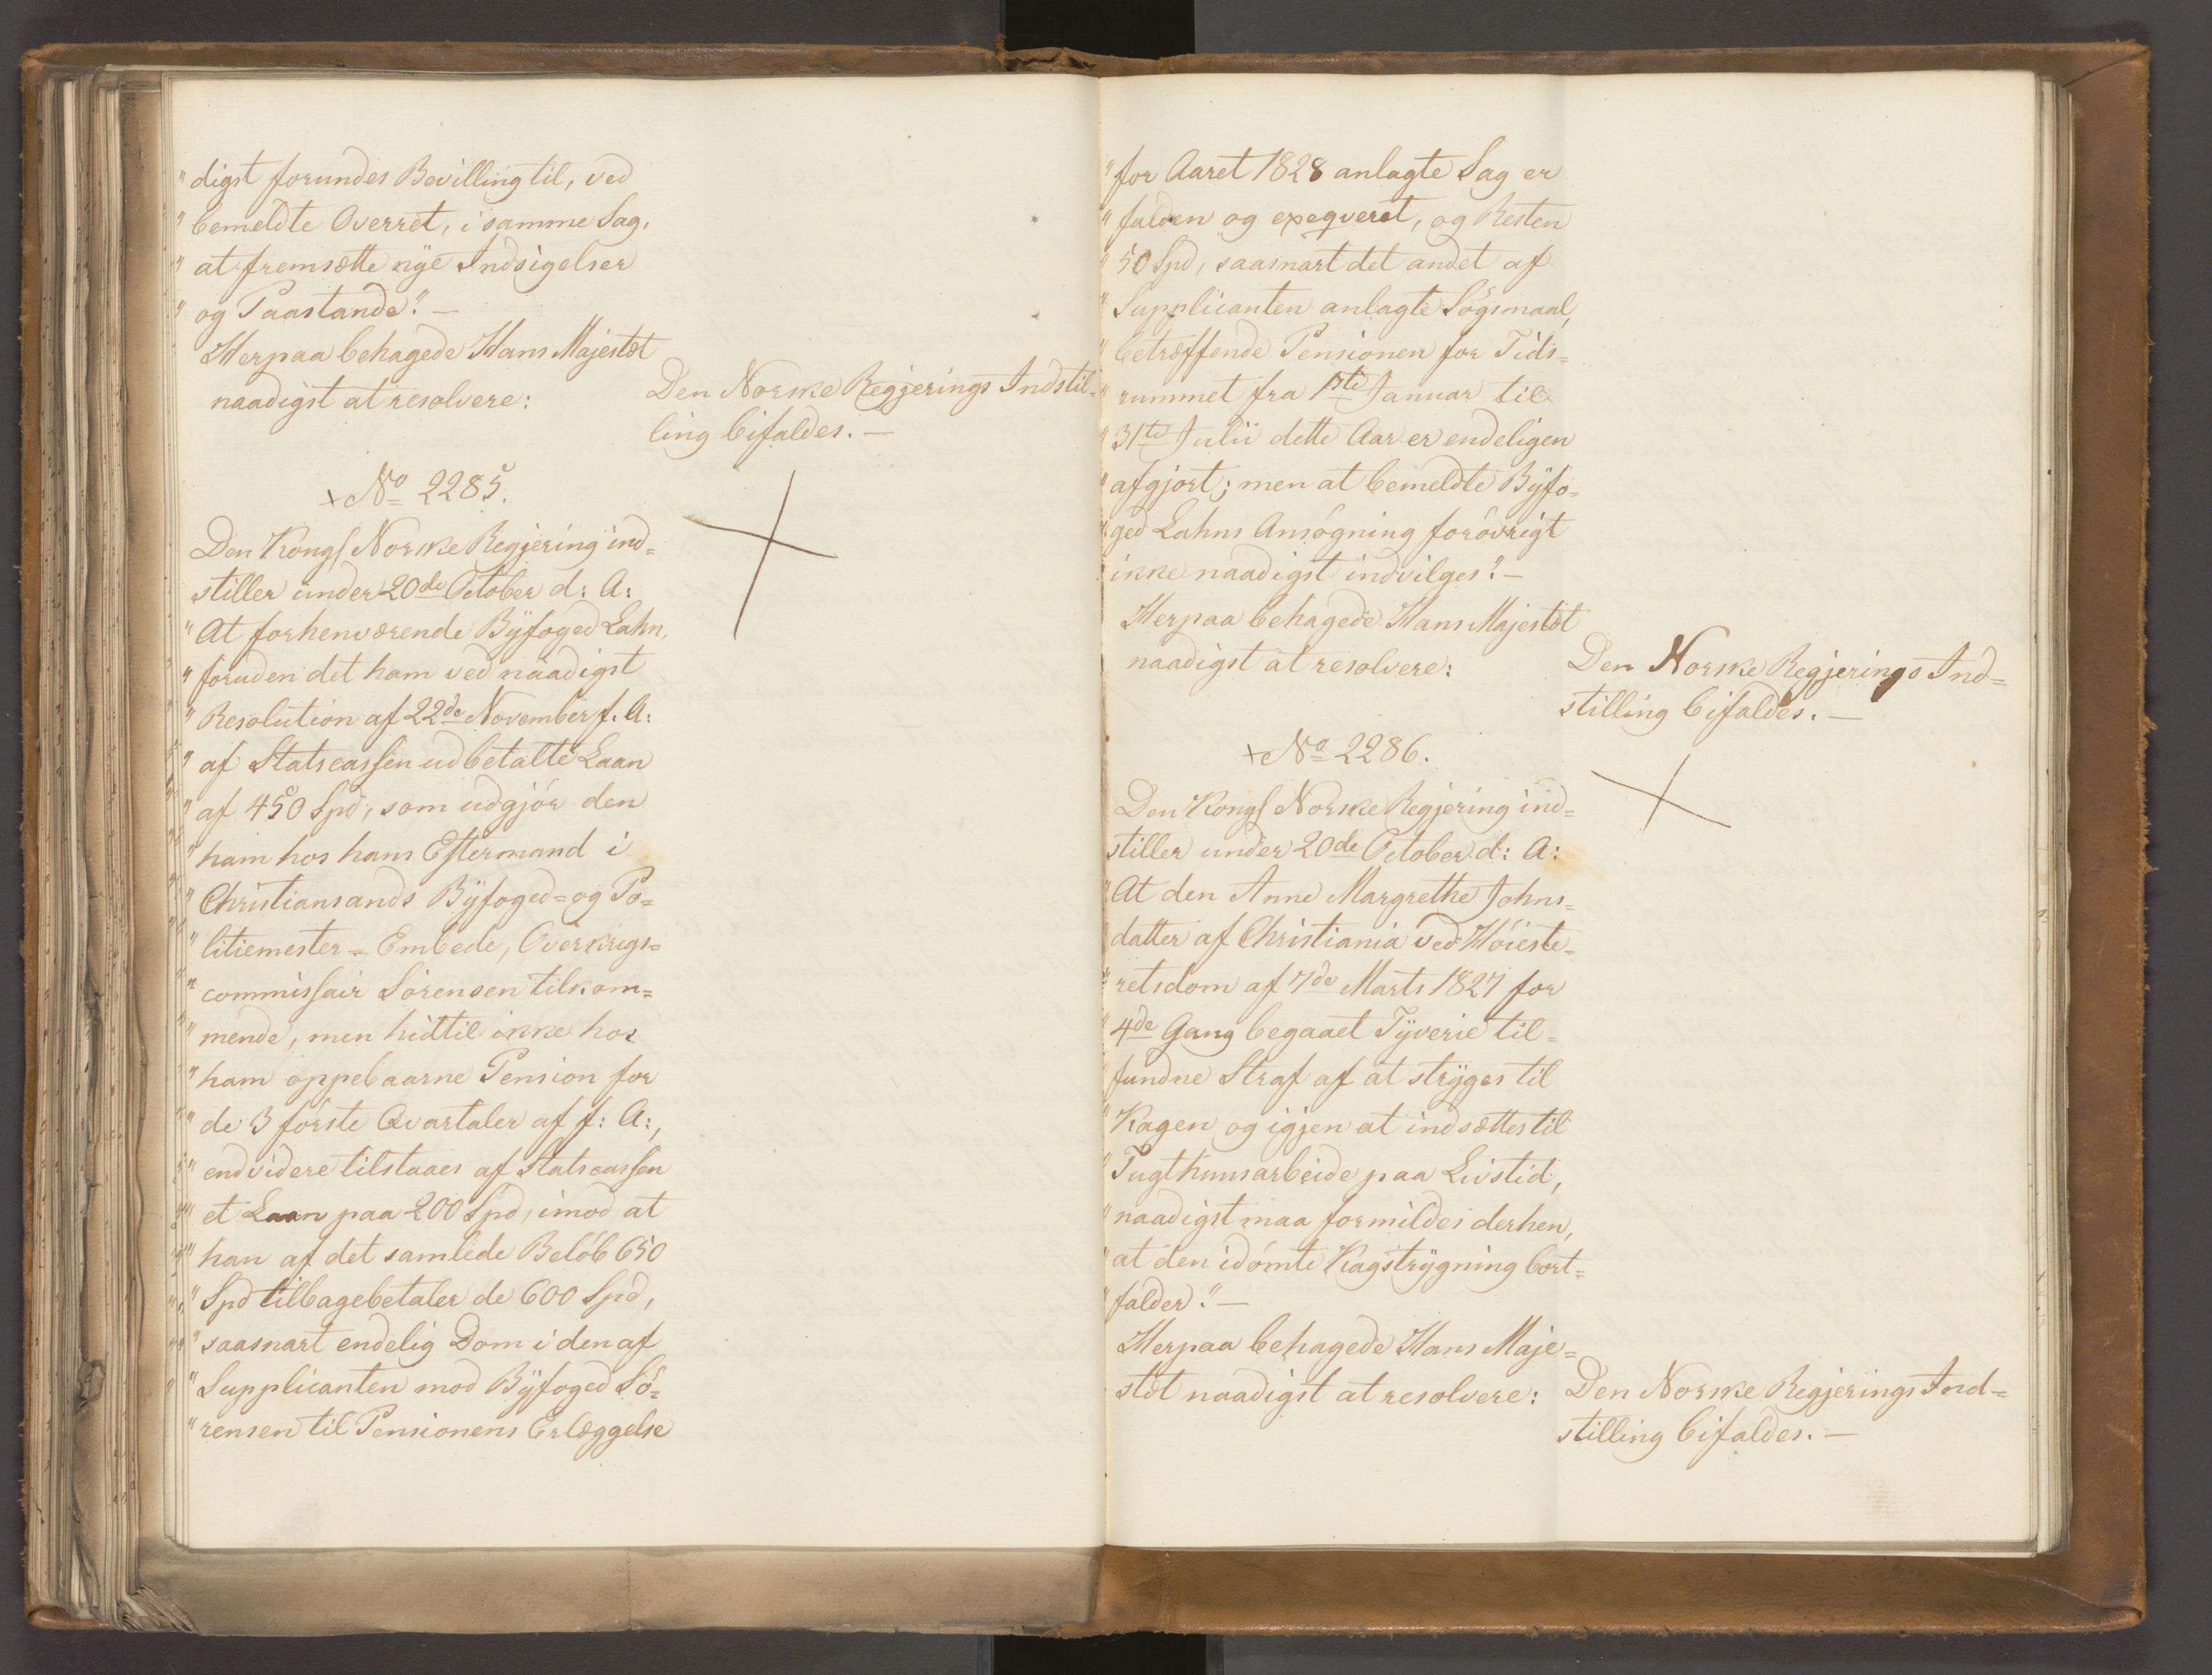 "digst forundes Bevilling til, ved
"bemeldte Overret, i samme Sag,
"at fremsætte nye Indsigelser
"og Paastande". —
Herpaa behagede Hans Majestæt
naadigst at resolvere:
Den Norske Regjerings Indstil=
ling bifaldes. —
+ No 2285.
Den Kongl Norske Regjering ind=
stiller under 20de October d: A:
"At forhenværende Byfoged Lahn,
"foruden det ham ved naadigst
"Resolution af 22de November f. A:
"af Statscassen udbetalte Laan
"af 450 Spd, som udgjør den
"ham hos hans Eftermand i
"Christiansands Byfoged= og Po=
"litiemester=Embede, Overkrigs=
"commissair Sørensen tilkom=
"mende, men hidtil ikke hos
"ham oppebaarne Pension for
"de 3 første Qvartaler af f: A:,
"endvidere tilstaaes af Statscassen
"et Laan paa 200 Spd, imod at
"han af det samlede Beløb 650
"Spd tilbagebetaler de 600 Spd,
"saasnart endelig Dom i den af
"Supplicanten mod Byfoged Sø=
"rensen til Pensionens Erlæggelse
"for Aaret 1828 anlagte Sag er
"falden og exeqveret, og Resten
"50 Spd, saasnart det andet af
"Supplicanten anlagte Søgsmaal,
"betræffende Pensionen for Tids=
"rummet fra 1ste Januar til
"31te Julii dette Aar er endeligen
"afgjort; men at bemeldte Byfo=
"ged Lahns Ansøgning forøvrigt
"ikke naadigst indvilges". —
Herpaa behagede Hans Majestæt
naadigst at resolvere:
Den Norske Regjerings Ind=
stilling bifaldes. —
+ No 2286.
Den Kongl Norske Regjering ind=
stiller under 20de October d: A:
"At den Anne Margrethe Johns=
"datter af Christiania ved Høieste=
"retsdom af 7de Marts 1827 for
"4de Gang begaaet Tyverie til=
"fundne Straf af at stryges til
"Kagen og igjen at indsættes til
"Tugthuusarbeide paa Livstid,
"naadigst maa formildes derhen,
"at den idømte Kagstrygning bort=
"falder". —
Herpaa behagede Hans Maje=
stæt naadigst at resolvere:
Den Norske Regjerings Ind=
stilling bifaldes. —